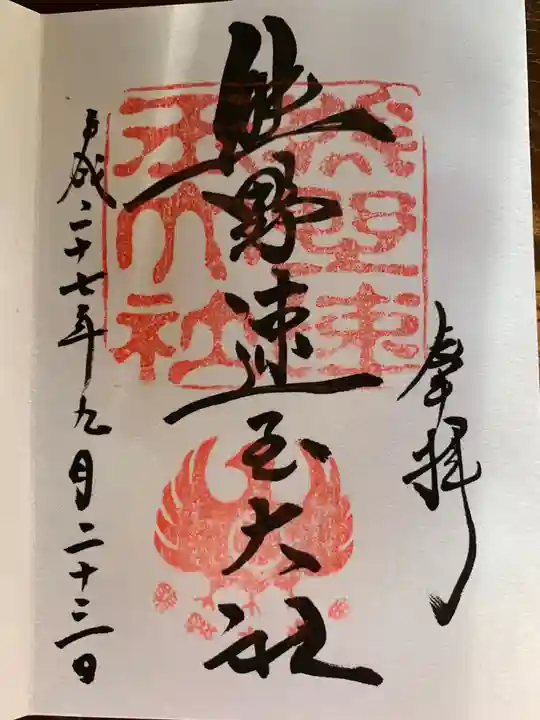 奉拝
熊野速玉大社
平成二十七年九月二十三日
熊野速
玉大社